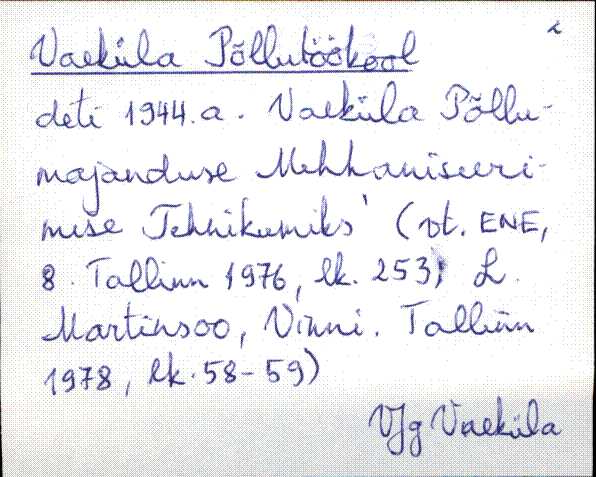 Vaeküla Põllutöökool
deti 1944.a. Vaeküla Põllu-
majanduse Mehhaniseeri-
mise Tehnikumiks' (vt. ENE,
8. Tallinn 1976, lk. 253; L.
Martinsoo, Vinni. Tallinn
1978, lk. 58-59)
VJg Vaeküla